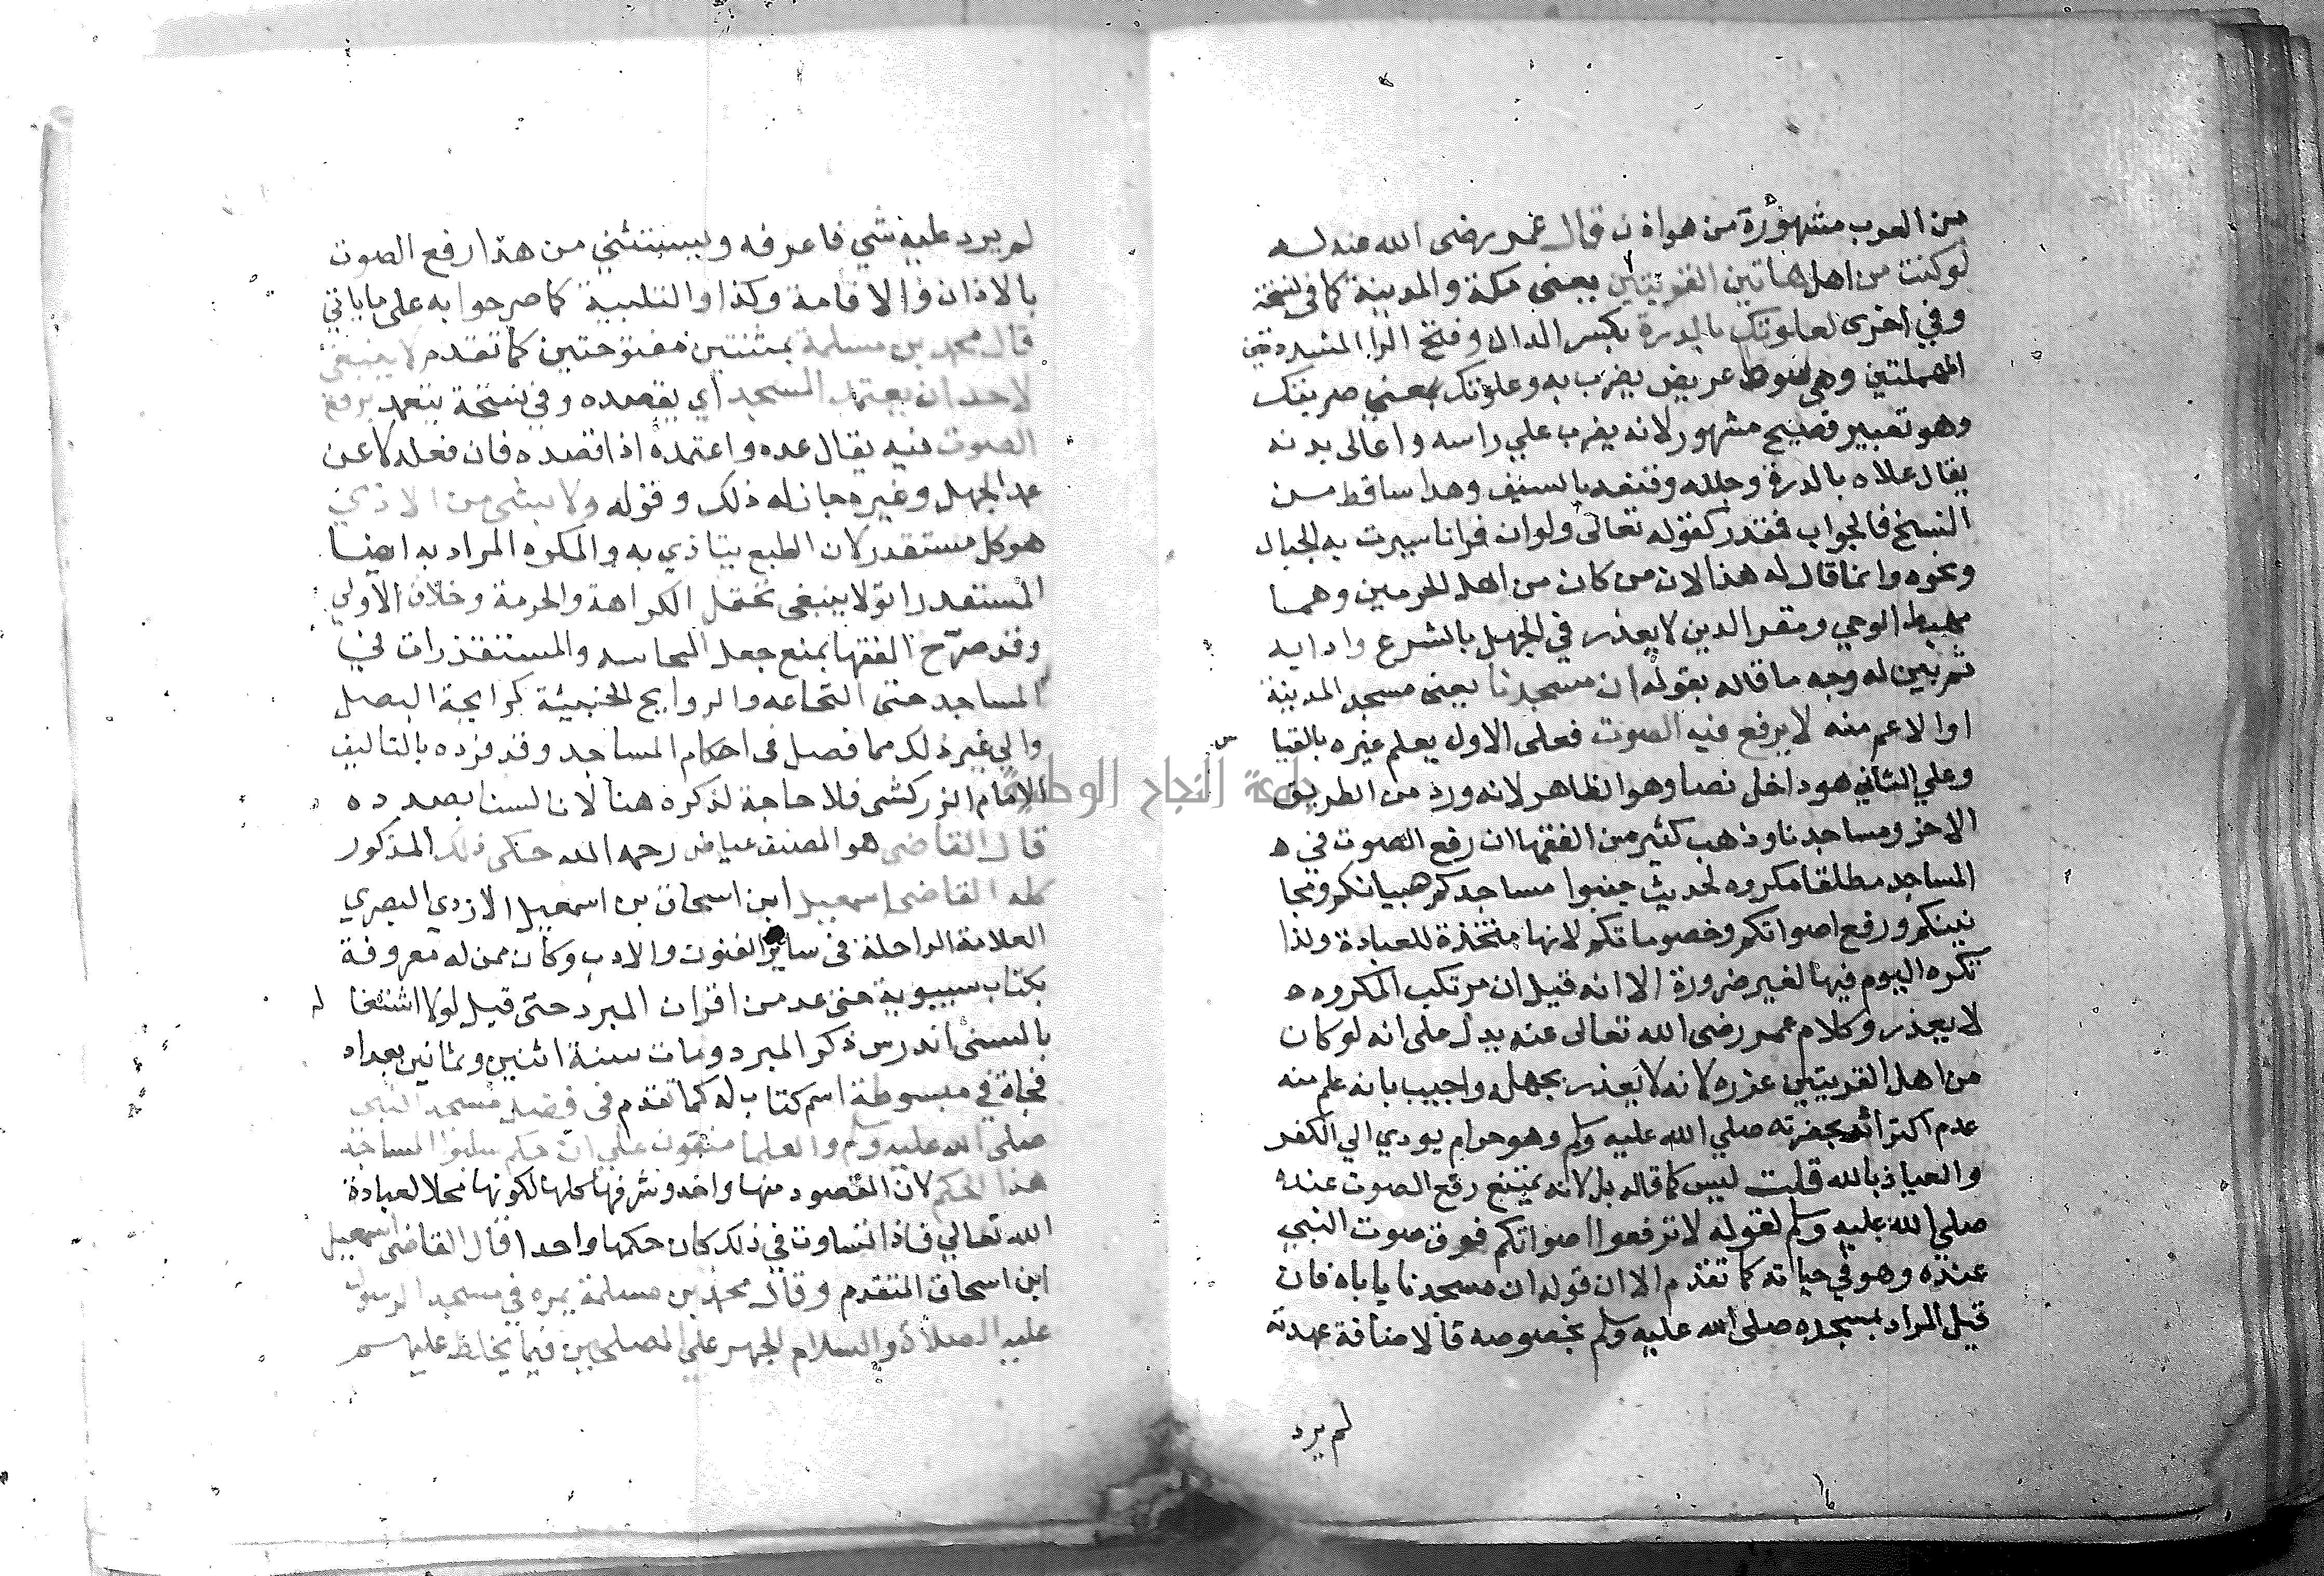 من العرب مشهورة من هوازن قال عمر رضى الله عنه له
لوكنت من اهل هاتين القريتين يعنى مكة والمدينة كما فى نسخة
وفي اخرى لعلوتك بالدرة بكسر الدال وفتح الرا المشددة
المهملتين وهى سوط عريض يضرب به وعلوتك بمعنى ضربتك
وهو تعبير فصيح مشهور لانه يضرب على راسه واعالى بدنه
يقال علاه بالدرة وجلله وقنعه بالسيف وهدا ساقط من
النسخ فالجواب مقدر كقوله تعالى ولوان قرانا سيرت به الجبال
ونحوه وانما قال له هذا لان من كان من اهل الحرمين وهما
مهبط الوحي ومقر الدين لا يعذر في الجهل بالشرع وادابه
ثم بين له وجه ما قاله بقوله ان مسجدنا يعنى مسجد المدينة
او الاعم منه لا يرفع فيه الصوت فعلى الاول يعلم غيره بالقيا
س
وعلي الثاني هو داخل نصا وهو الظاهر لانه ورد من الطريق
الاخر ومساجدنا وذهب كثير من الفقها ان رفع الصوت في ه
المساجد مطلقا مكروه لحديث جنبوا مساجدكم صبيانكم ومجا
نينكم ورفع اصواتكم وخصوماتكم لانها متخذة للعبادة ولذا
تكره اليوم فيها لغير ضرورة الا انه قيل ان مرتكب المكروه ه
لا يعذر وكلام عمر رضى الله تعالى عنه يدل على انه لو كان
من اهل القريتين عزره لانه لا يعذر بجهله واجيب بانه علم منه
عدم اكتراثه بحضرته صلي الله عليه وسلم وهو حرام يودي الي الكفر
والعياذ بالله قلت ليس كما قاله بل لانه يمتنع رفع الصوت عنده
صلي الله عليه وسلم لقوله لا ترفعوا اصواتكم فوق صوت النبي
عنده وهو في حياته كما تقدم الا ان قوله ان مسجدنا ياباه فان
قيل المراد بمسجده صلى الله عليه وسلم بخصوصه فالاضافة عهدية
لم يرد
لم يرد عليه شي فاعرفه ويستثني من هذا رفع الصوت
بالاذان والاقامة وكذا والتلبية كما صرحوا به على ما ياتي
قال محمد بن مسلمة بمثنتين مفتوحتين كما تقدم لا ينبغي
لاحد ان يعتمد المسجد اي يقصده وفي نسخة يتعمد برفع
الصوت فيه يقال عمده واعتمده اذا قصده فان فعله لا عن
عمد الجهل وغيره جاز له ذلك وقوله ولا بشى من الاذي
هو كل مستقذر لان الطبع يتاذي به والمكروه المراد به ايضا
المستقذر اتو لا ينبغى تحتمل الكراهة والحرمة وخلاف الاولي
وقد صرح الفقها بمنع جعل النجاسه والمستقذرات في
المساجد حتى النخاعه والروايح الخبيثة كرايحة البصل
والي غير ذلك مما فصل فى احكام المساجد وقد فرده بالتاليف
الامام الزركشى فلا حاجة لذكره هنا لانا لسنا بصدده
قال القاضي هو المصنف عياض رحمه الله حكى ذلك المذكور
كله القاضى اسمعيل ابن اسحاق بن اسمعيل الازدي البصري
العلامة الراحلة فى ساير الفنون والادب وكان ممن له معروفة
بكتاب سيبوية حتى عد من اقران المبرد حتى قيل لولا اشتغا له
بالسنى اندرس ذكر المبرد ومات سنة اثنين وثمانين ببغداد
فجاة في مبسوطة اسم كتاب له كما تقدم فى فضل مسجد النبي
صلى الله عليه وسلم والعلما متفقون على ان حكم ساير المساجد
هذا الحكم لان المقصود منها واحد وشرفها كلها لكونها محلا لعبادة
الله تعالي فاذا تساوت في ذلك كان حكمها واحدا قال القاضى اسمعيل
ابن اسحاق المتقدم وقال محمد بن مسلمة يكره في مسجد الرسول
عليه الصلاة والسلام الجهر علي المصلين فيما يخلط عليهم
جامعة النجاح الوطنية